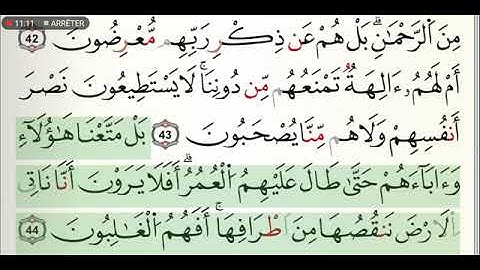 11:11 ■ ARRÊTER
مِنَ ٱلرَّحْمَٰنِۚ بَلْ هُمْ عَن ذِكْرِ رَبِّهِم مُّعْرِضُونَ 42
أَمْ لَهُمُۥٓ ءَالِهَةٌ تَمْنَعُهُم مِّن دُونِنَاۚ لَا يَسْتَطِيعُونَ نَصْرَ
أَنفُسِهِمْ وَلَا هُم مِّنَّا يُصْحَبُونَ 43 بَلْ مَتَّعْنَا هَٰٓؤُلَآءِ
وَءَابَآءَهُمْ حَتَّىٰ طَالَ عَلَيْهِمُ ٱلْعُمُرُۗ أَفَلَا يَرَوْنَ أَنَّا نَاتِي
ٱلَارْضَ نَنقُصُهَا مِنَ اَطْرَافِهَاۚ أَفَهُمُ ٱلْغَٰلِبُونَ 44